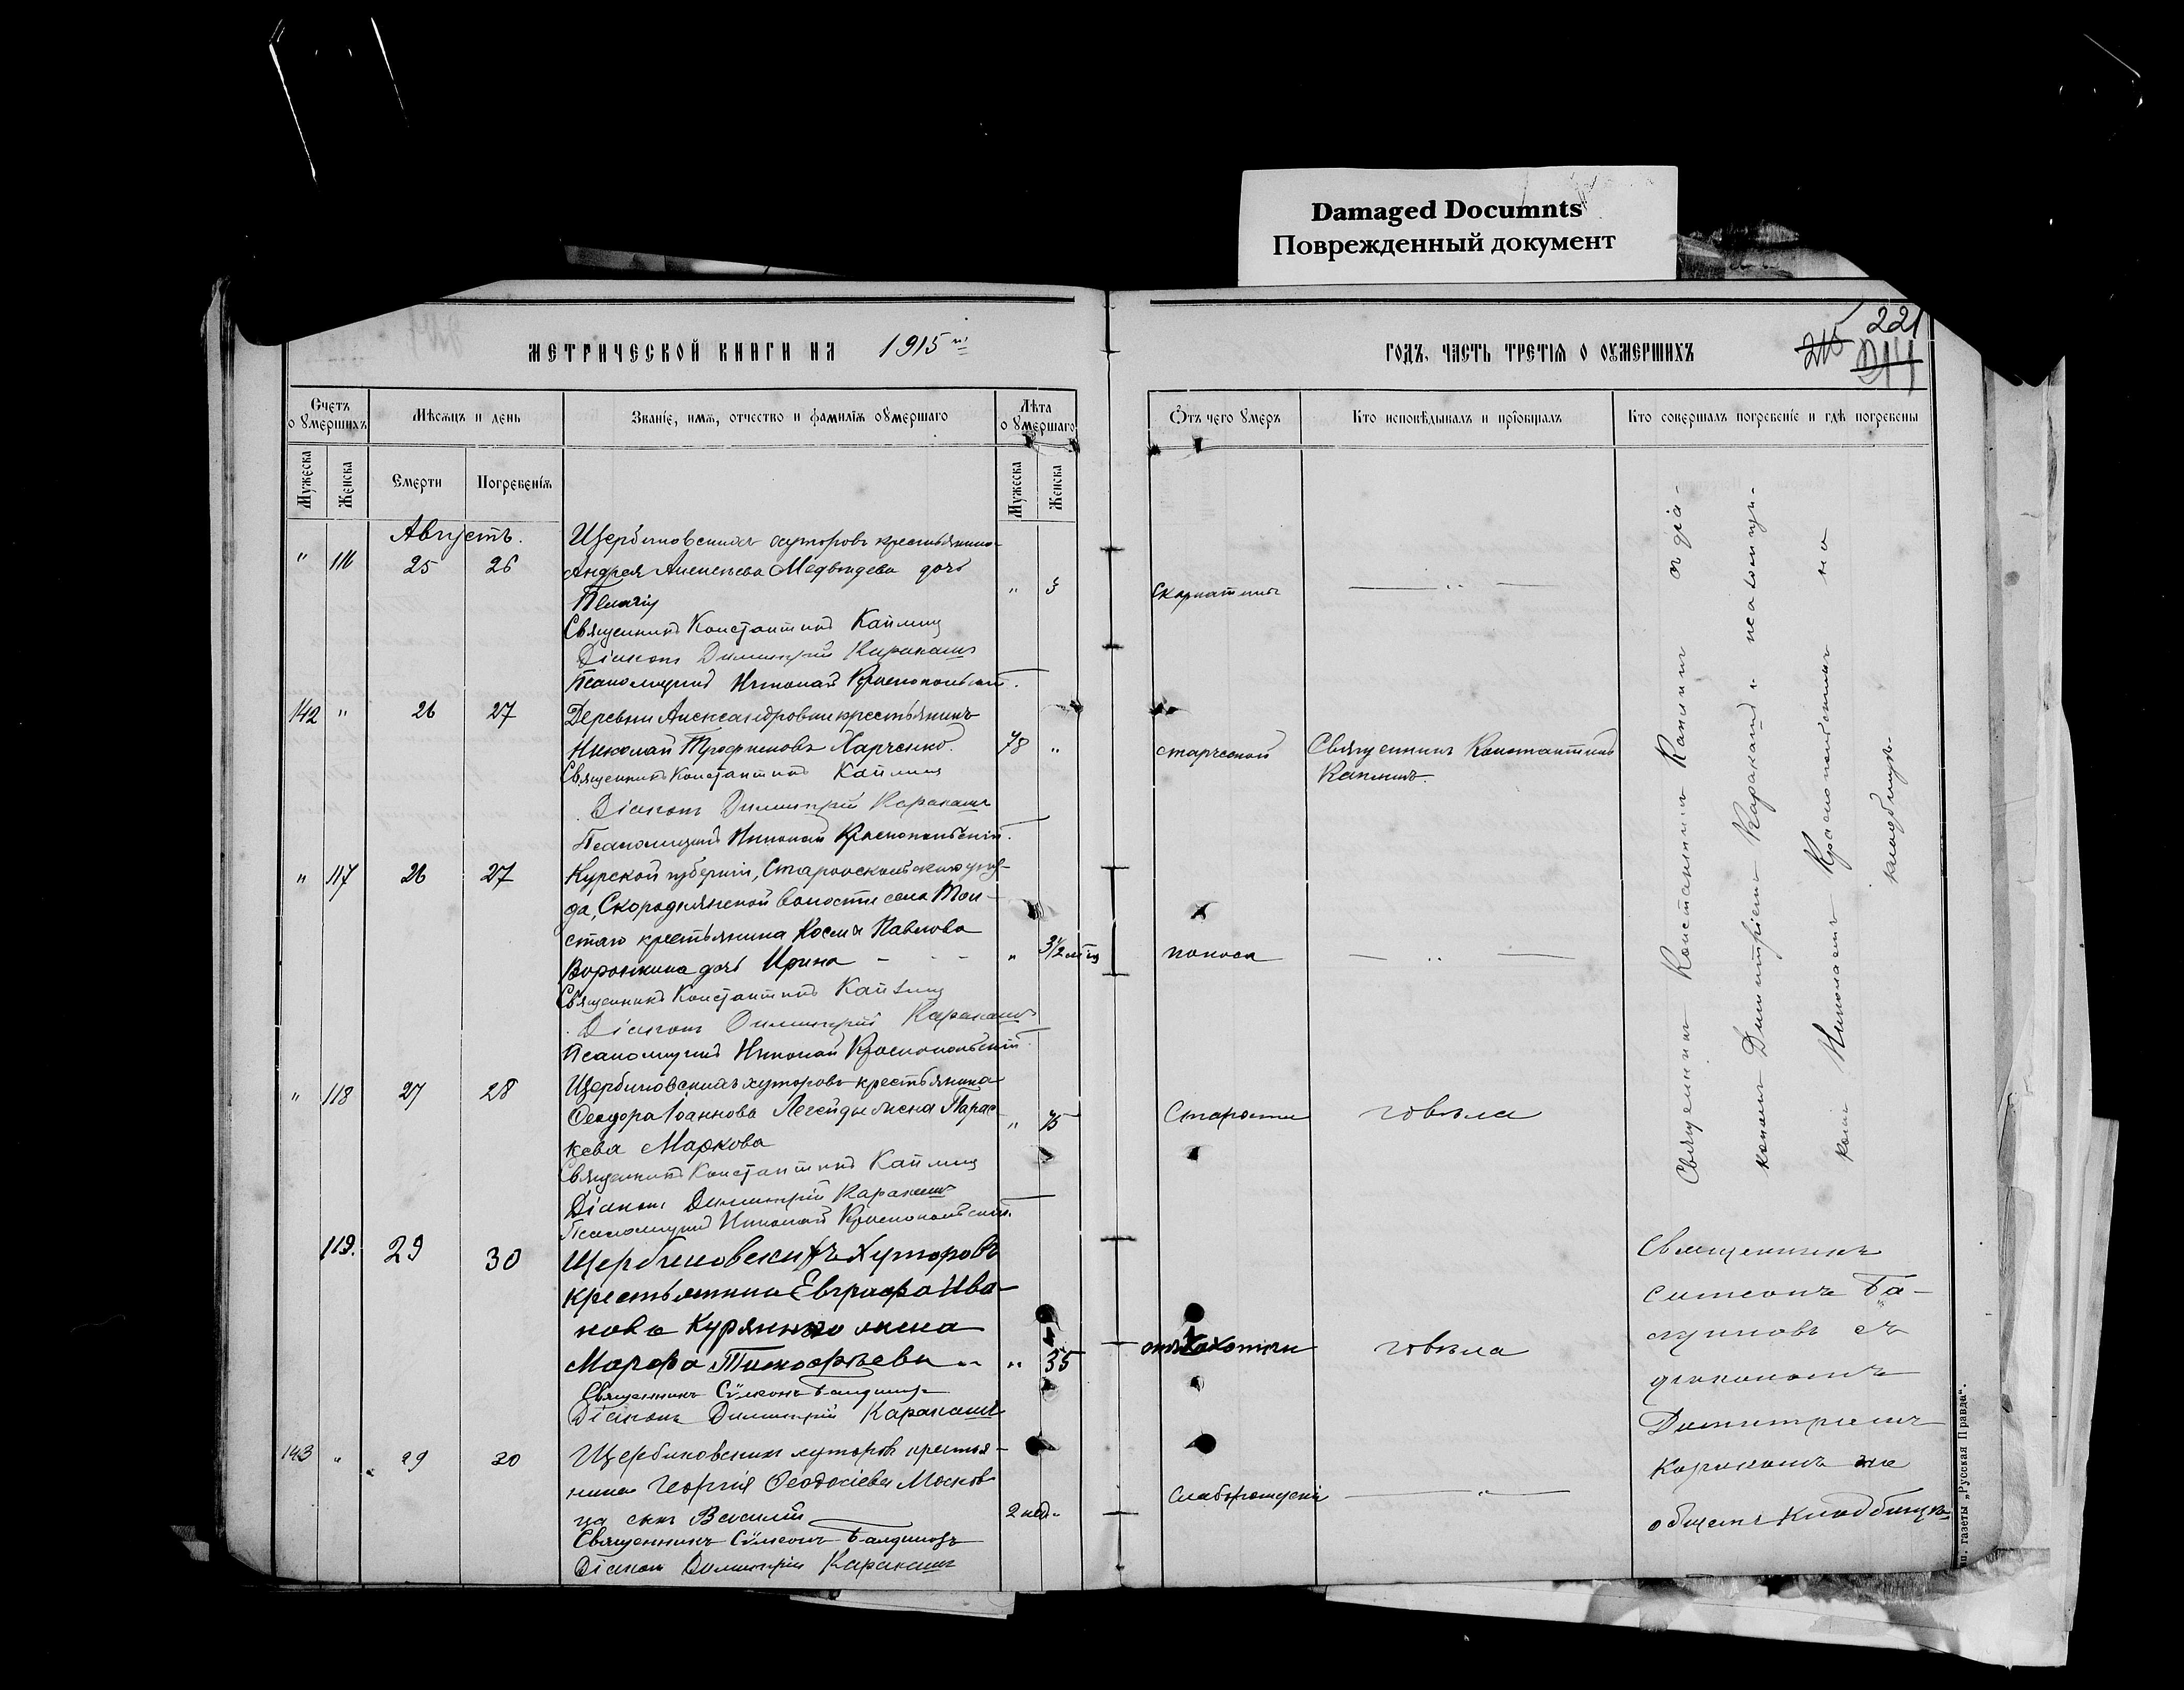 Damaged Documnts
Поврежденный документ
МЕТРИЧЕСКОЙ КНИГИ НА 1915 й
ГОДЪ, ЧАСТЬ ТРЕТІЯ О ОУМЕРШИХЪ
215 214
221
Счетъ о умершихъ
Мѣсяцъ и день
Званіе, имя, отчество и фамилія оумершаго
Лѣта оумершаго
Отъ чего умеръ
Кто исповѣдывалъ и пріобщалъ
Кто совершалъ погребеніе и гдѣ погребены
Мужеска
Женска
Смерти
Погребенія
Мужеска
Женска
Августъ.
" 116 25 26
Щербиновскихъ хуторовъ крестьянина
Андрея Алексѣева Медвѣдева дочь
Пелагія
" 3 скарлатины
Священникъ Константинъ Каплинъ
Діаконъ Димитрій Каракашъ
Псаломщикъ Николай Краснопольскій.
142 " 26 27
Деревни Александровки крестьянинъ
Николай Трофимовъ Харченко.
78 " старческой Священникъ Константинъ
Каплинъ.
Священникъ Константинъ Каплинъ
Діаконъ Димитрій Каракашъ
Псаломщикъ Николай Краснопольскій.
" 117 26 27
Курской губерніи, Старооскольскаго уѣз-
да, Скороднянской волости села Тол-
стаго крестьянина Космы Павлова
Воронкина дочь Ирина
" 3 1/2 мѣсц поноса
Священникъ Константинъ Каплинъ
Діаконъ Димитрій Каракашъ
Псаломщикъ Николай Краснопольскій.
" 118 27 28
Щербиновскихъ хуторовъ крестьянина
Ѳеодора Іоаннова Легейды жена Парас-
кева Маркова
" 75 Старости говѣла
Священникъ Константинъ Каплинъ
Діаконъ Димитрій Каракашъ
Псаломщикъ Николай Краснопольскій.
Священникъ Константинъ Каплинъ съ діа-
кономъ Димитріемъ Каракашъ и псаломщи-
комъ Николаемъ Краснопольскимъ на
кладбищѣ.
119. 29 30
Щербиновскихъ Хуторовъ
крестьянина Евграфа Ива-
нова Курянъко жена
Марфа Тимофѣева
" 35 отъ чахотки говѣла
Священникъ Сѵмеонъ Балдиновъ
Діаконъ Димитрій Каракашъ
Священникъ
Симеонъ Ба-
съ
діакономъ
Димитріемъ
Каракашъ на
общемъ кладбищѣ
143 " 29 30
Щербиновскихъ хуторовъ крестья-
нина Георгія Ѳеодосіева Москов-
ца сынъ Василій
2 нед. Слаборожденія
Священникъ Сѵмеонъ Балдиновъ
Діаконъ Димитрій Каракашъ
тип. газеты „Русская Правда".